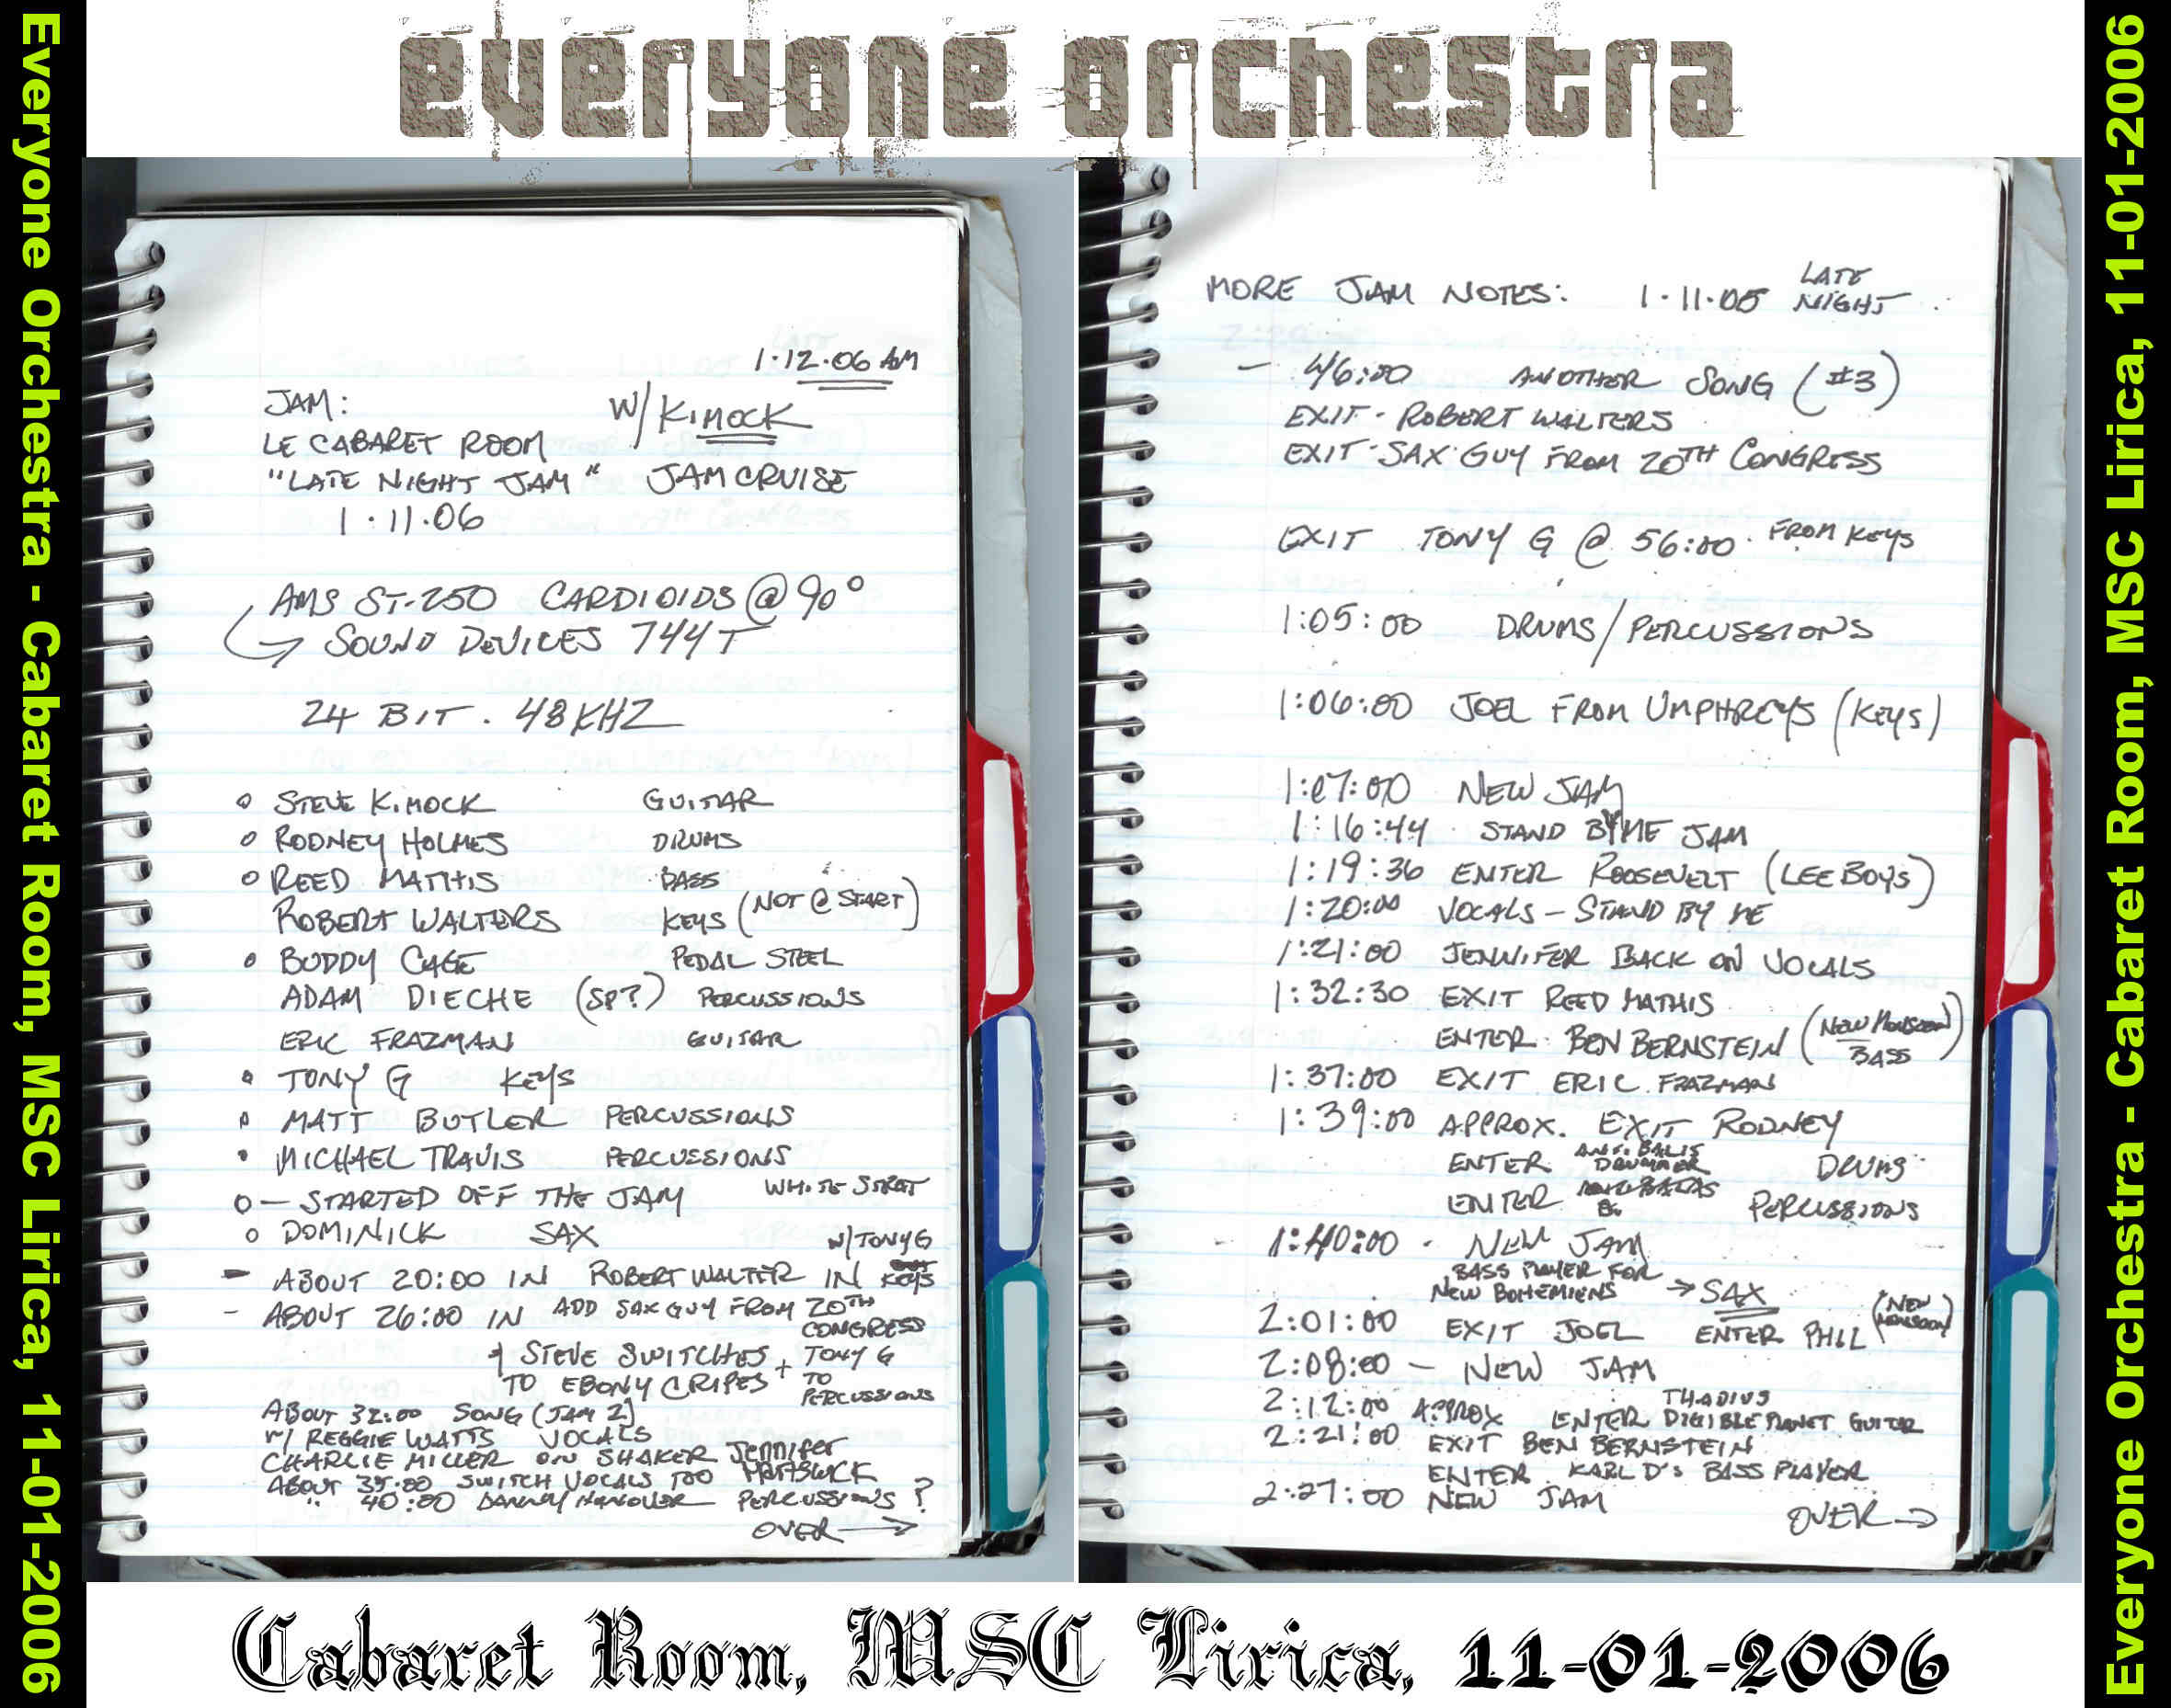 everyone orchestra
Everyone Orchestra - Cabaret Room, MSC Lirica, 11-01-2006
1.12.06 AM
JAM: W/ KIMOCK
LE CABARET ROOM
"LATE NIGHT JAM" JAM CRUISE
1.11.06
AMS ST-250 CARDIOIDS @ 90°
→ SOUND DEVICES 744T
24 BIT. 48KHZ
o STEVE KIMOCK GUITAR
o RODNEY HOLMES DRUMS
o REED MATHIS BASS
ROBERT WALTERS KEYS (NOT @ START)
o BUDDY CAGE PEDAL STEEL
ADAM DIECHE (SP?) PERCUSSIONS
ERIC FRAZMAN GUITAR
o TONY G KEYS
o MATT BUTLER PERCUSSIONS
• MICHAEL TRAVIS PERCUSSIONS
o — STARTED OFF THE JAM WHITE STRAT
o DOMINICK SAX
– ABOUT 20:00 IN ROBERT WALTER IN KEYS W/TONY G
– ABOUT 26:00 IN ADD SAX GUY FROM 20TH CONGRESS
+ STEVE SWITCHES TO EBONY CRIPES + TONY G TO PERCUSSIONS
ABOUT 32:00 SONG (JAM 2)
W/ REGGIE WATTS VOCALS
CHARLIE MILLER ON SHAKER
ABOUT 35:00 SWITCH VOCALS TOO Jennifer
" 40:00 PERCUSSIONS ?
OVER →
MORE JAM NOTES: 1.11.05 LATE NIGHT
– 46:00 ANOTHER SONG (#3)
EXIT - ROBERT WALTERS
EXIT - SAX GUY FROM 20TH CONGRESS
EXIT TONY G @ 56:00 FROM KEYS
1:05:00 DRUMS/PERCUSSIONS
1:06:00 JOEL FROM UMPHREYS (KEYS)
1:07:00 NEW JAM
1:16:44 STAND BY ME JAM
1:19:36 ENTER ROOSEVELT (LEE BOYS)
1:20:00 VOCALS – STAND BY ME
1:21:00 JENNIFER BACK ON VOCALS
1:32:30 EXIT REED MATHIS
ENTER BEN BERNSTEIN (NEW MONSOON) BASS
1:37:00 EXIT ERIC FRAZMAN
1:39:00 APPROX. EXIT RODNEY
ENTER ANTIBALIS DRUMMER DRUMS
ENTER PERCUSSIONS
1:40:00 - NEW JAM
BASS PLAYER FOR
NEW BOHEMIENS → SAX
2:01:00 EXIT JOEL ENTER PHIL (NEW MONSOON)
2:08:00 – NEW JAM
2:12:00 APPROX ENTER THADIUS DIGIBLE PLANET GUITAR
2:21:00 EXIT BEN BERNSTEIN
ENTER KARL D's BASS PLAYER
2:27:00 NEW JAM
OVER →
Everyone Orchestra - Cabaret Room, MSC Lirica, 11-01-2006
Cabaret Room, MSC Lirica, 11-01-2006